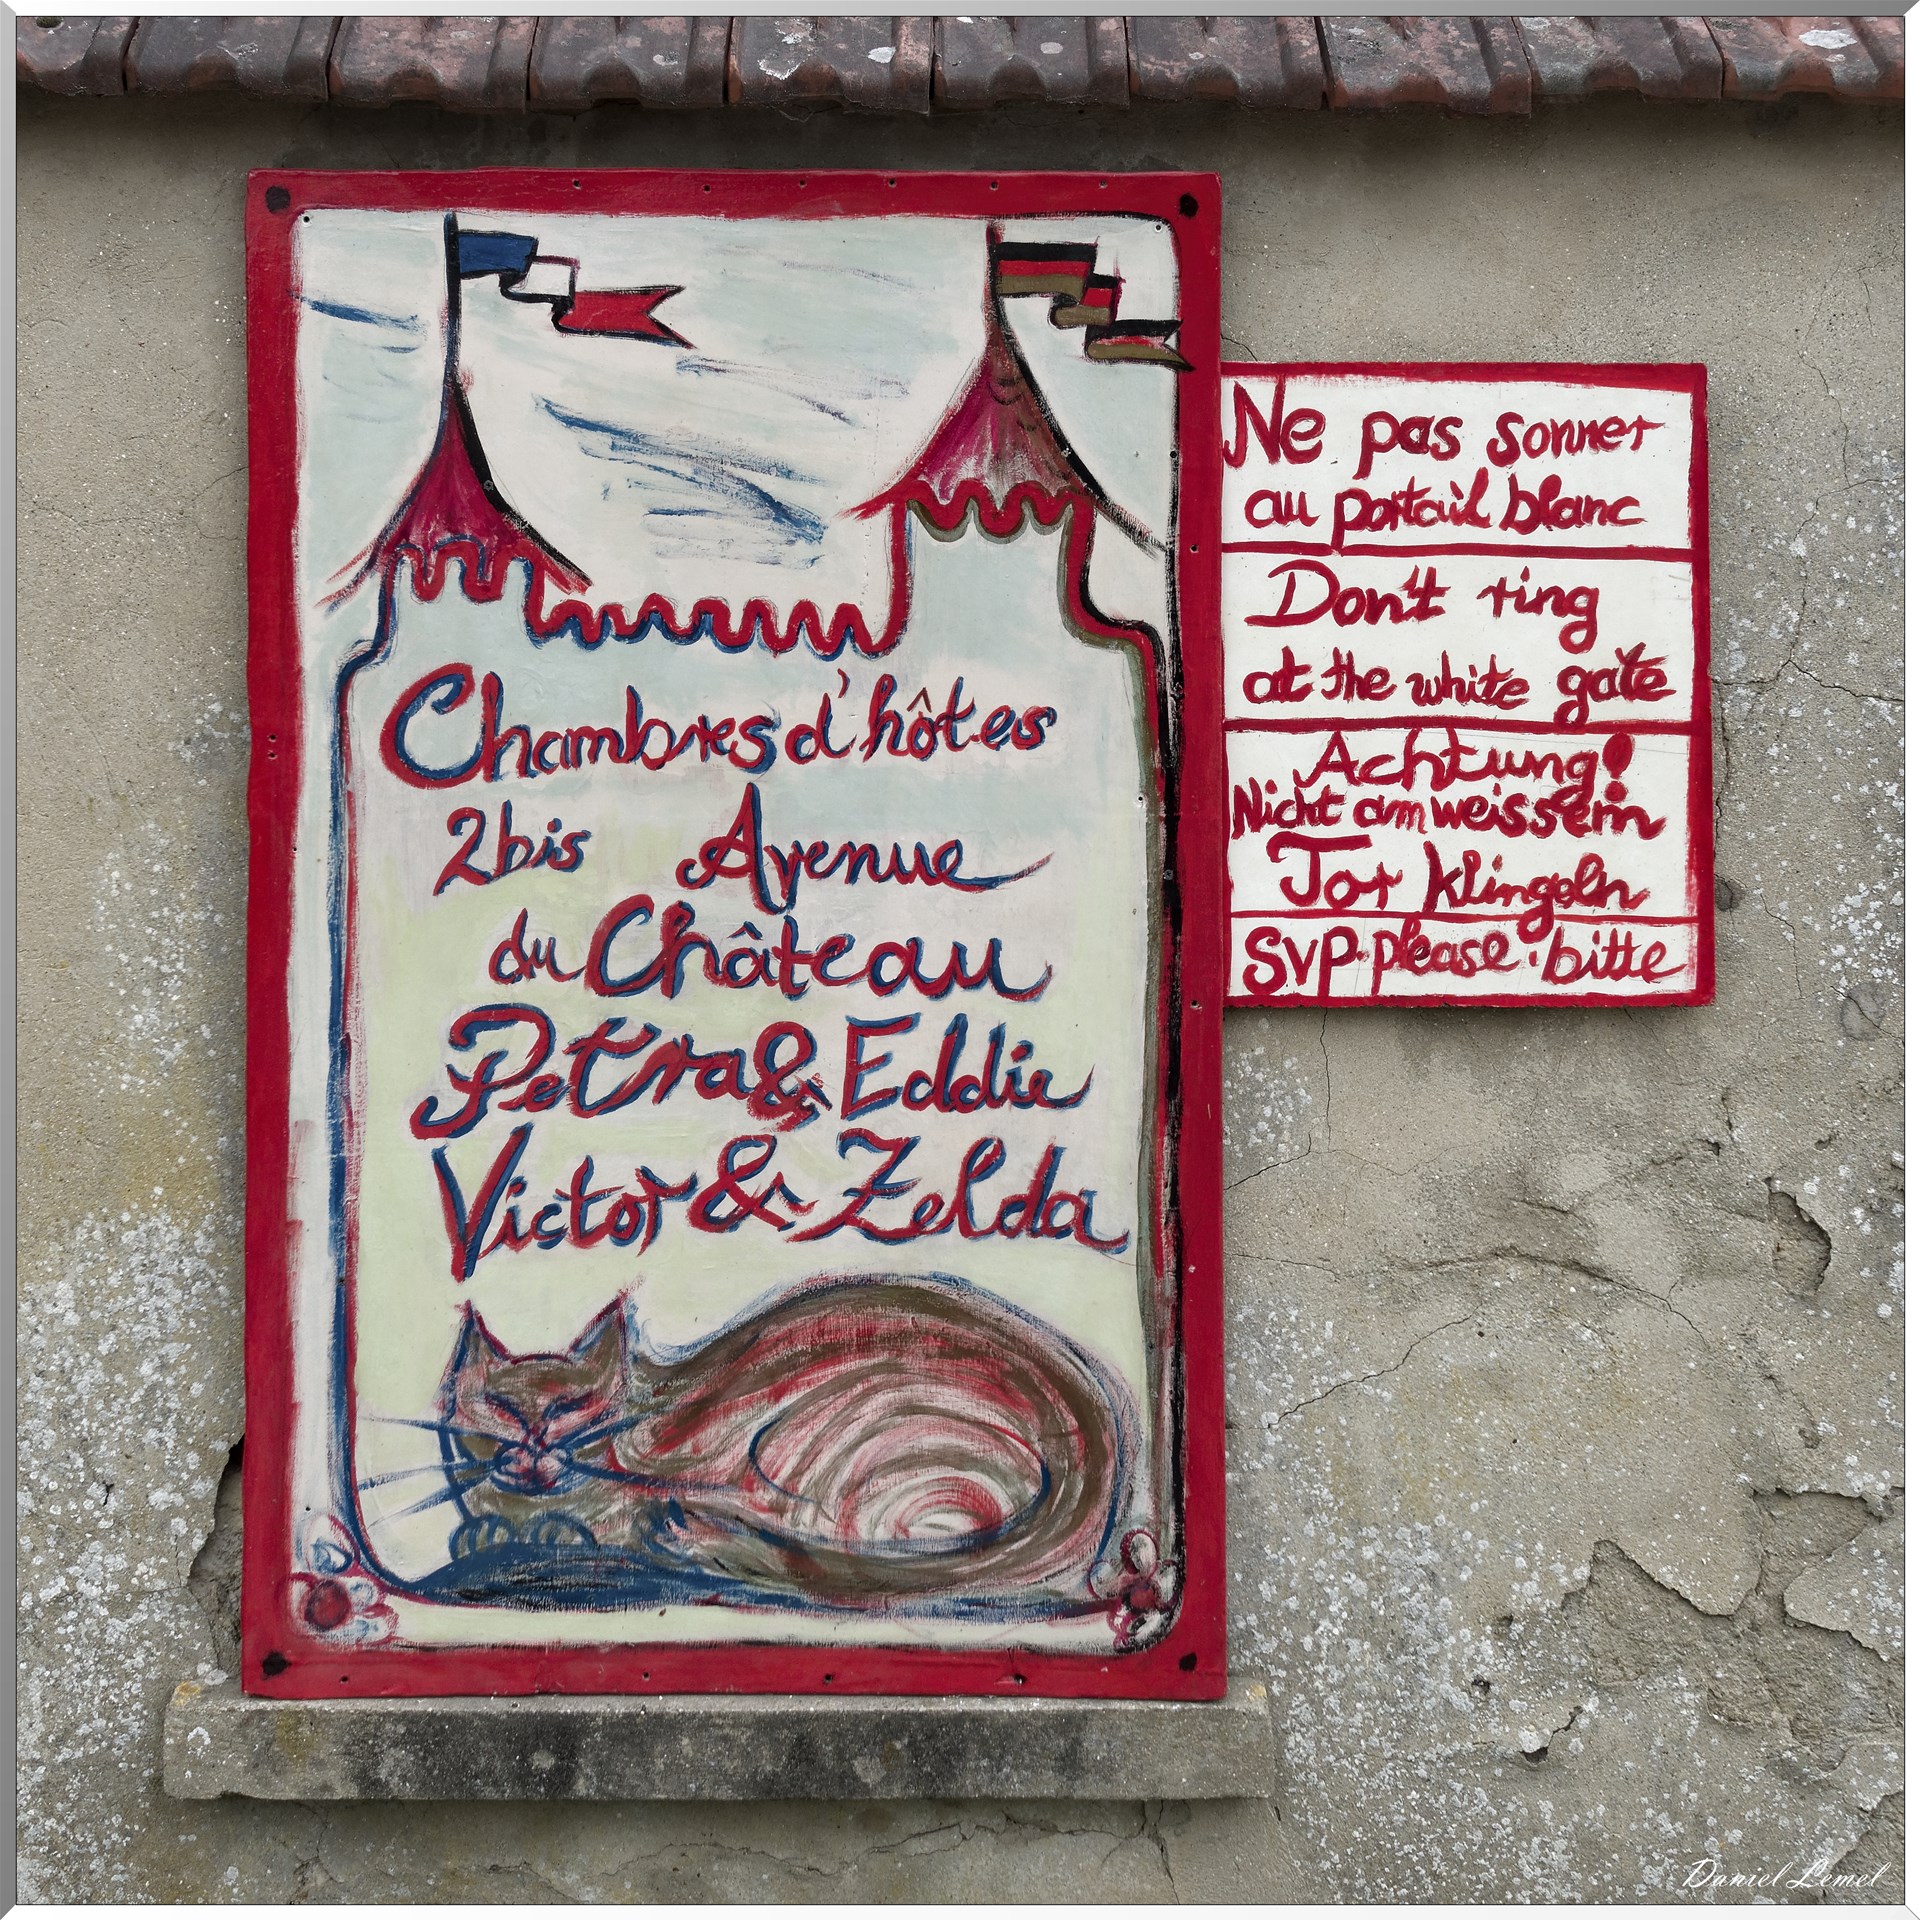 Chambres d'hôtes
2bis Avenue
du Château
Petra & Eddie
Victor & Zelda
Ne pas sonner
au portail blanc
Don't ring
at the white gate
Achtung!
Nicht am weissem
Tor klingeln
SVP. please. bitte
Daniel Lemel